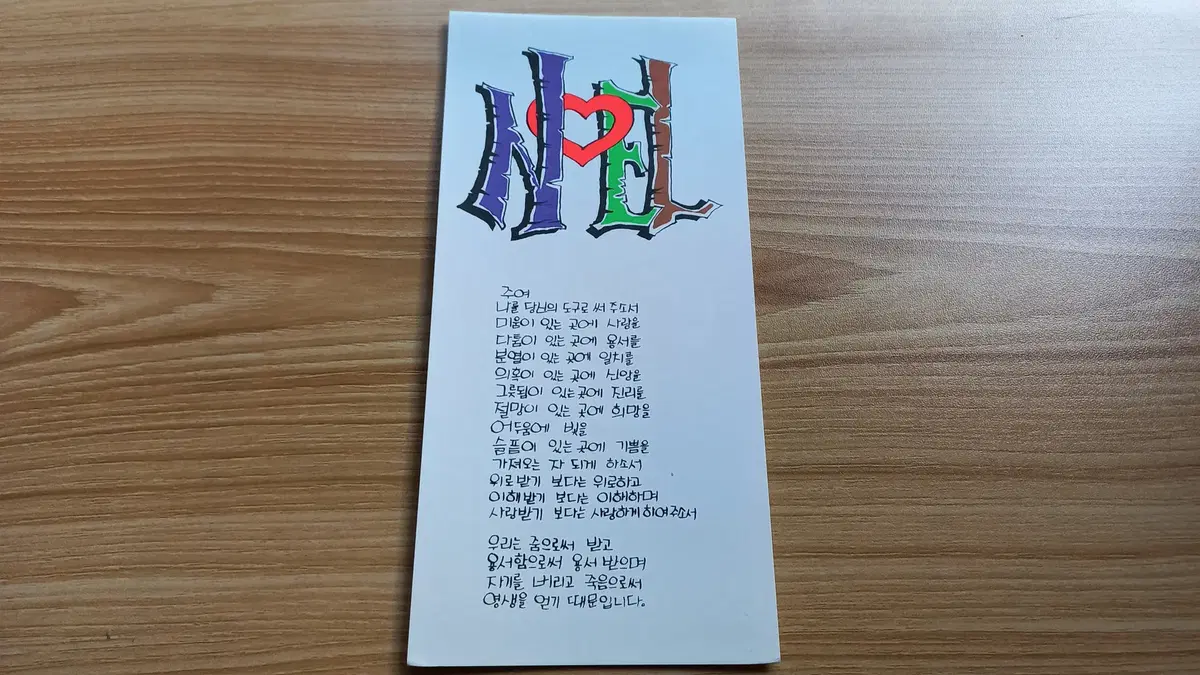 NOEL
주여
나를 당신의 도구로 써 주소서
미움이 있는 곳에 사랑을
다툼이 있는 곳에 용서를
분열이 있는 곳에 일치를
의혹이 있는 곳에 신앙을
그릇됨이 있는곳에 진리를
절망이 있는 곳에 희망을
어두움에 빛을
슬픔이 있는곳에 기쁨을
가져오는 자 되게 하소서
위로받기 보다는 위로하고
이해받기 보다는 이해하며
사랑받기 보다는 사랑하게하여주소서
우리는 줌으로써 받고
용서함으로써 용서 받으며
자기를 버리고 죽음으로써
영생을 얻기 때문입니다.